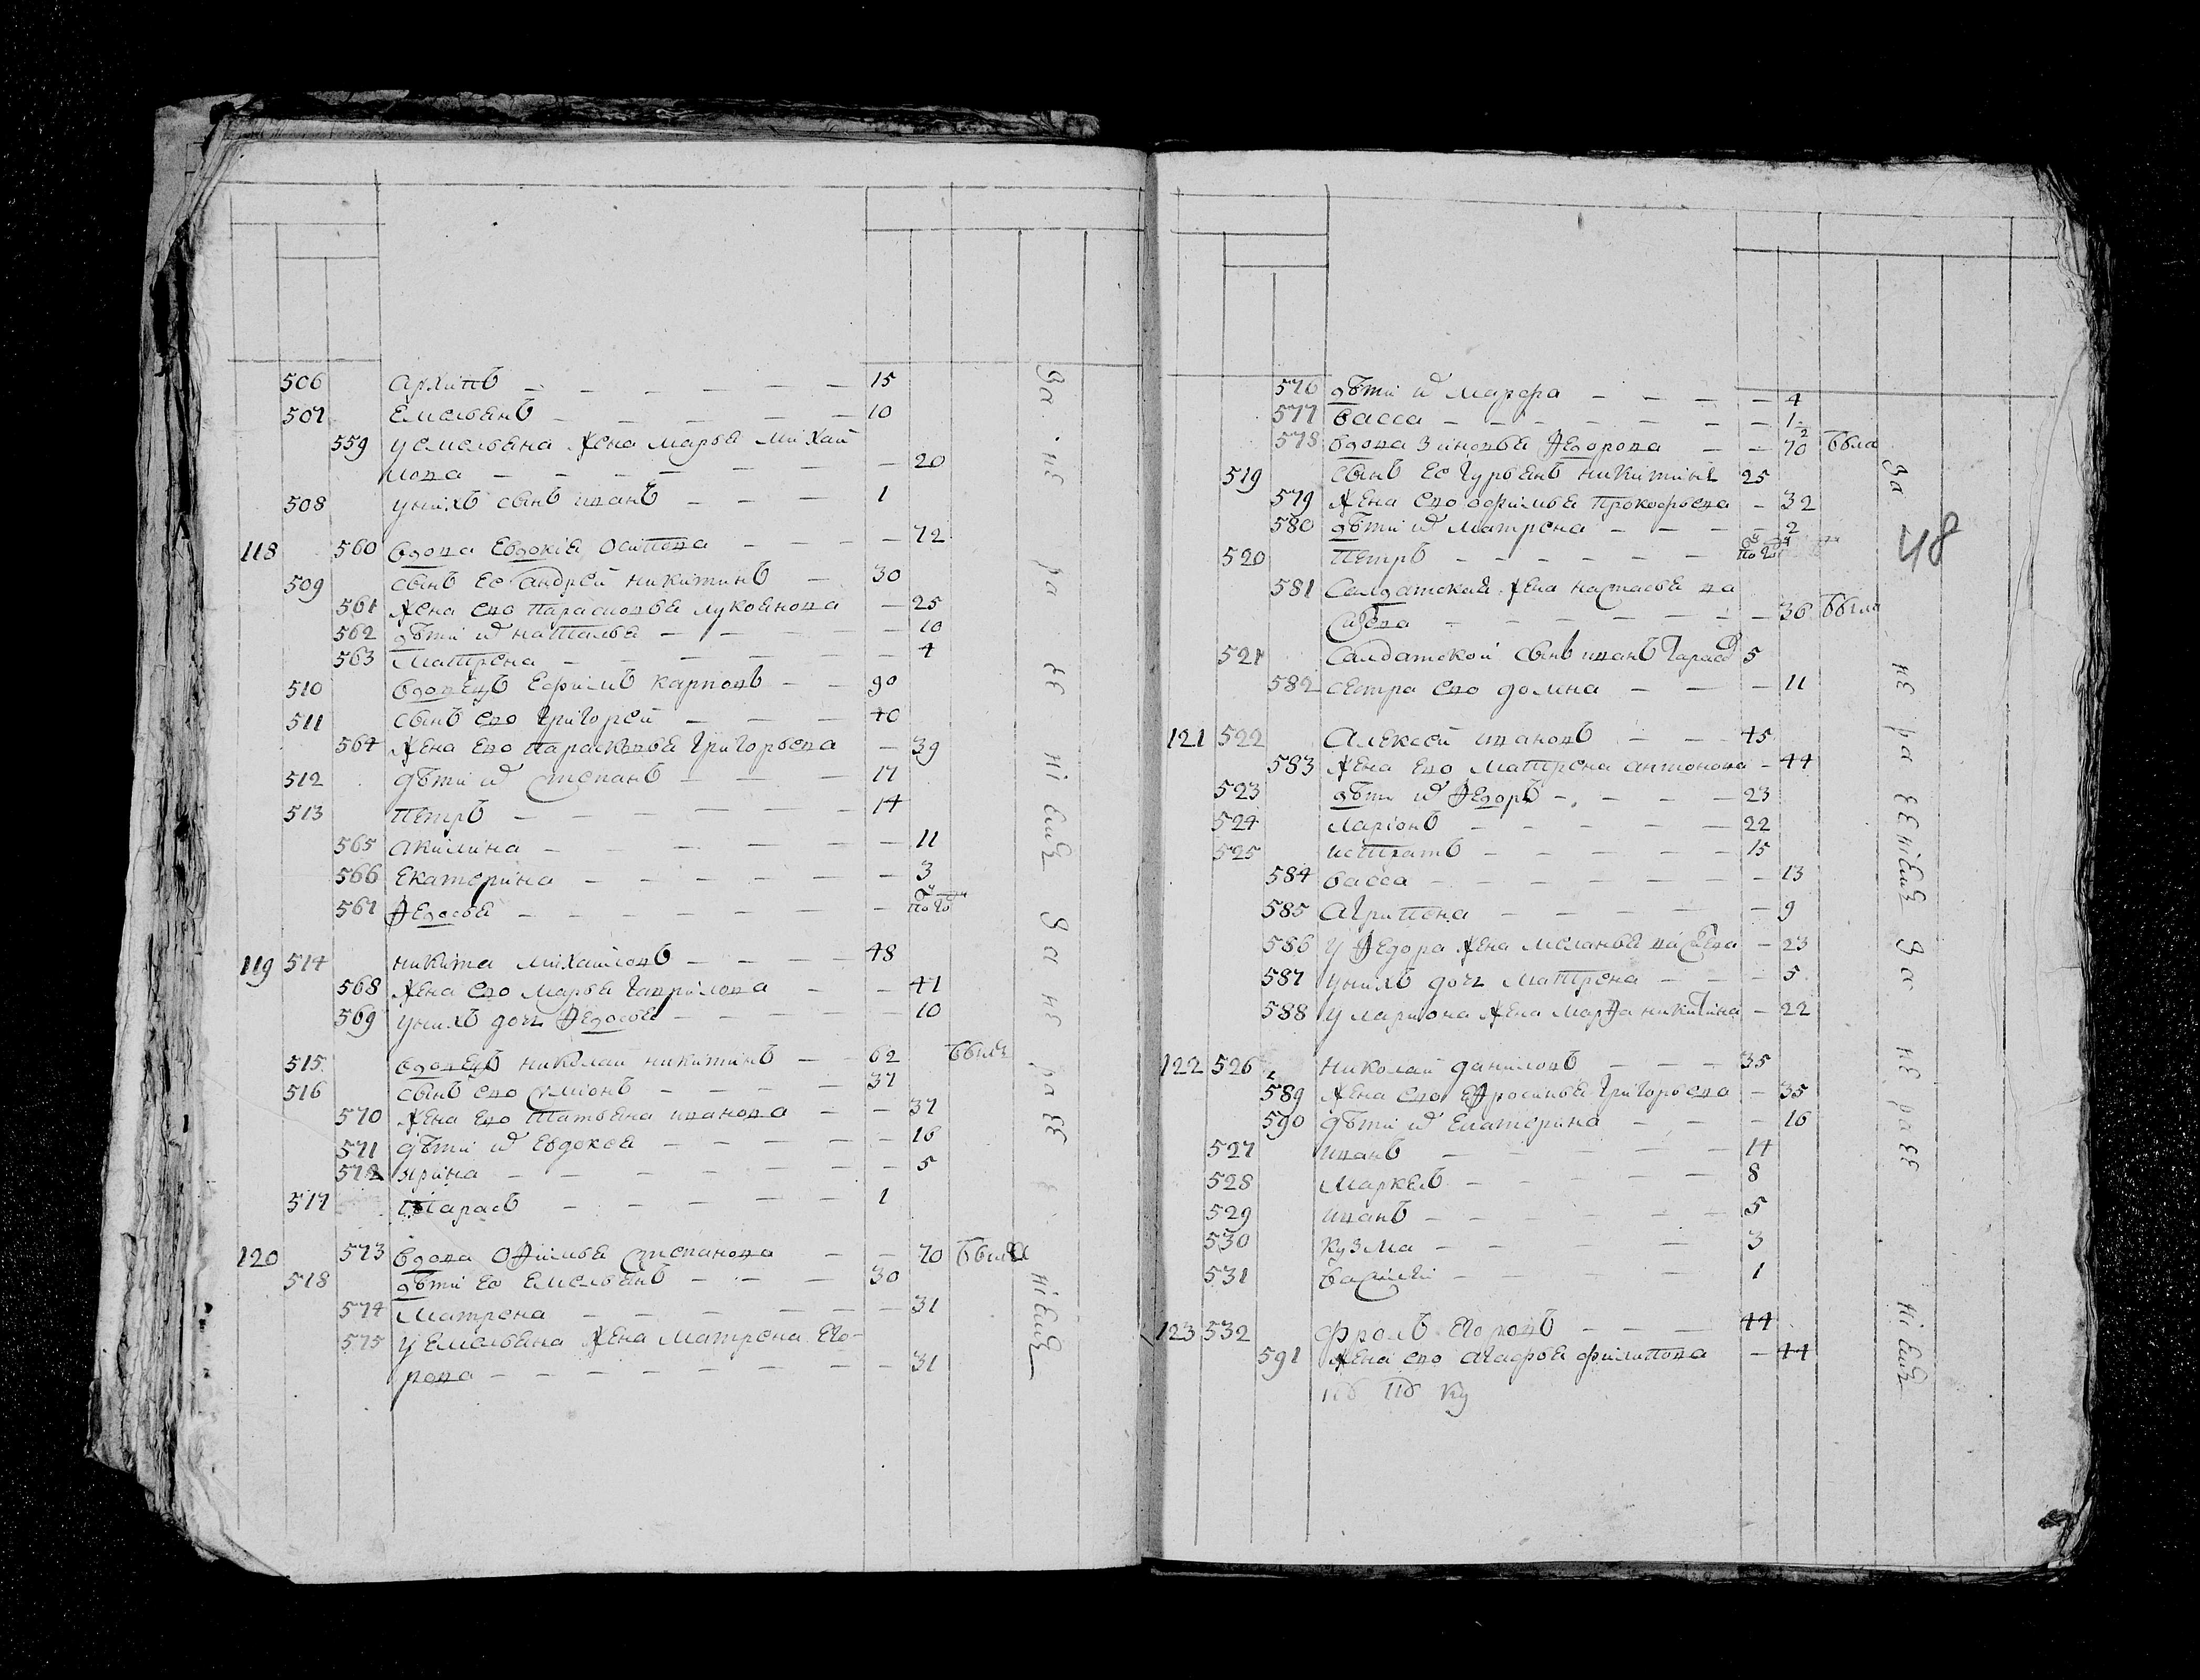 506 Архипъ — 15
507 Емельянъ — 10
559 у емельяна жена марья михаи
лова — 20
508 у нихъ сынъ иванъ — 1
118 560 вдова евдокия осипова — 72
509 сынъ ее андреи никитинъ — 30
561 жена ево парасковья лукоянова — 25
562 дѣти их наталья — 10
563 матрена — 4
510 вдовецъ ефимъ карповъ — 90
511 сынъ ево григореи — 40
564 жена ево парасковья григорьева — 39
512 дѣти их степанъ — 17
513 петръ — 14
565 акилина — 11
566 екатерина — 3
567 федосья — по го
119 514 никита михаиловъ — 48
568 жена ево марья гаврилова — 41
569 у нихъ дочь федосья — 10
515 вдовецъ николаи никитинъ — 62 былъ
516 сынъ ево симионъ — 37
570 жена ево татьяна иванова — 37
571 дѣти их евдокея — 16
572 ирина — 5
517 тарасъ — 1
120 573 вдова офимья степанова — 70 была
518 дѣти ее емельянъ — 30
574 матрена — 31
575 у емельяна жена матрена его-
рова — 31
За не ра се ні емъ За не ра зе ніемъ
48
576 дѣти их марфа — 4
577 васса — 1
578 вдова зиновья федорова — 70 была
519 сынъ ее гурьянъ никитинъ 25
579 жена ево офимья прокофьева — 32
580 дѣти их матрена — 2
520 петръ — по го
581 салдатская жена настасья ва
силева — 36 была
521 салдатской сынъ иванъ тарасов 5
582 сетра ево домна — 11
121 522 алексеи ивановъ — 45
583 жена ево матрена антонова — 44
523 дѣти их федоръ — 23
524 ларіонъ — 22
525 истратъ — 15
584 васса — 13
585 агрипена — 9
586 у федора жена меланья васильева — 23
587 у нихъ дочь матрена — 5
588 у лариона жена марфа никитина — 22
122 526 николаи даниловъ — 35
589 жена ево ефросинья григорьева — 35
590 дѣти их екатерина — 16
527 иванъ — 14
528 маркелъ — 8
529 иванъ — 5
530 кузма — 3
531 василеи — 1
123 532 фролъ егоровъ — 44
591 жена ево агафья филипова — 44